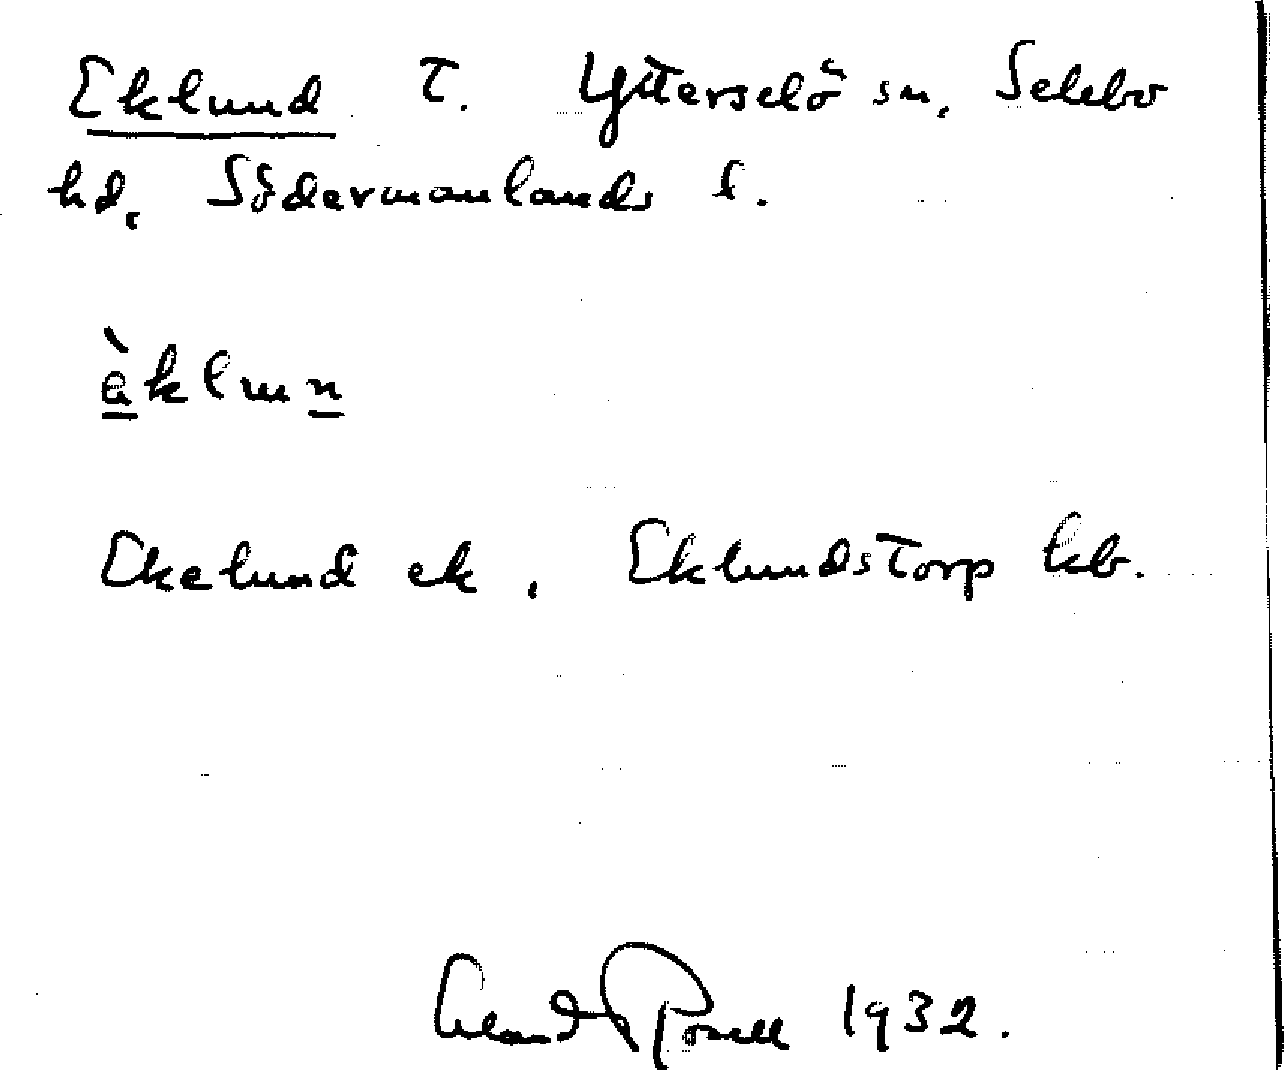 Eklund t. Ytterselö sn, Selebo
hd, Södermanlands l.
èklun
Ekelund ek, Eklundstorp kb.
Erland Rosell 1932.